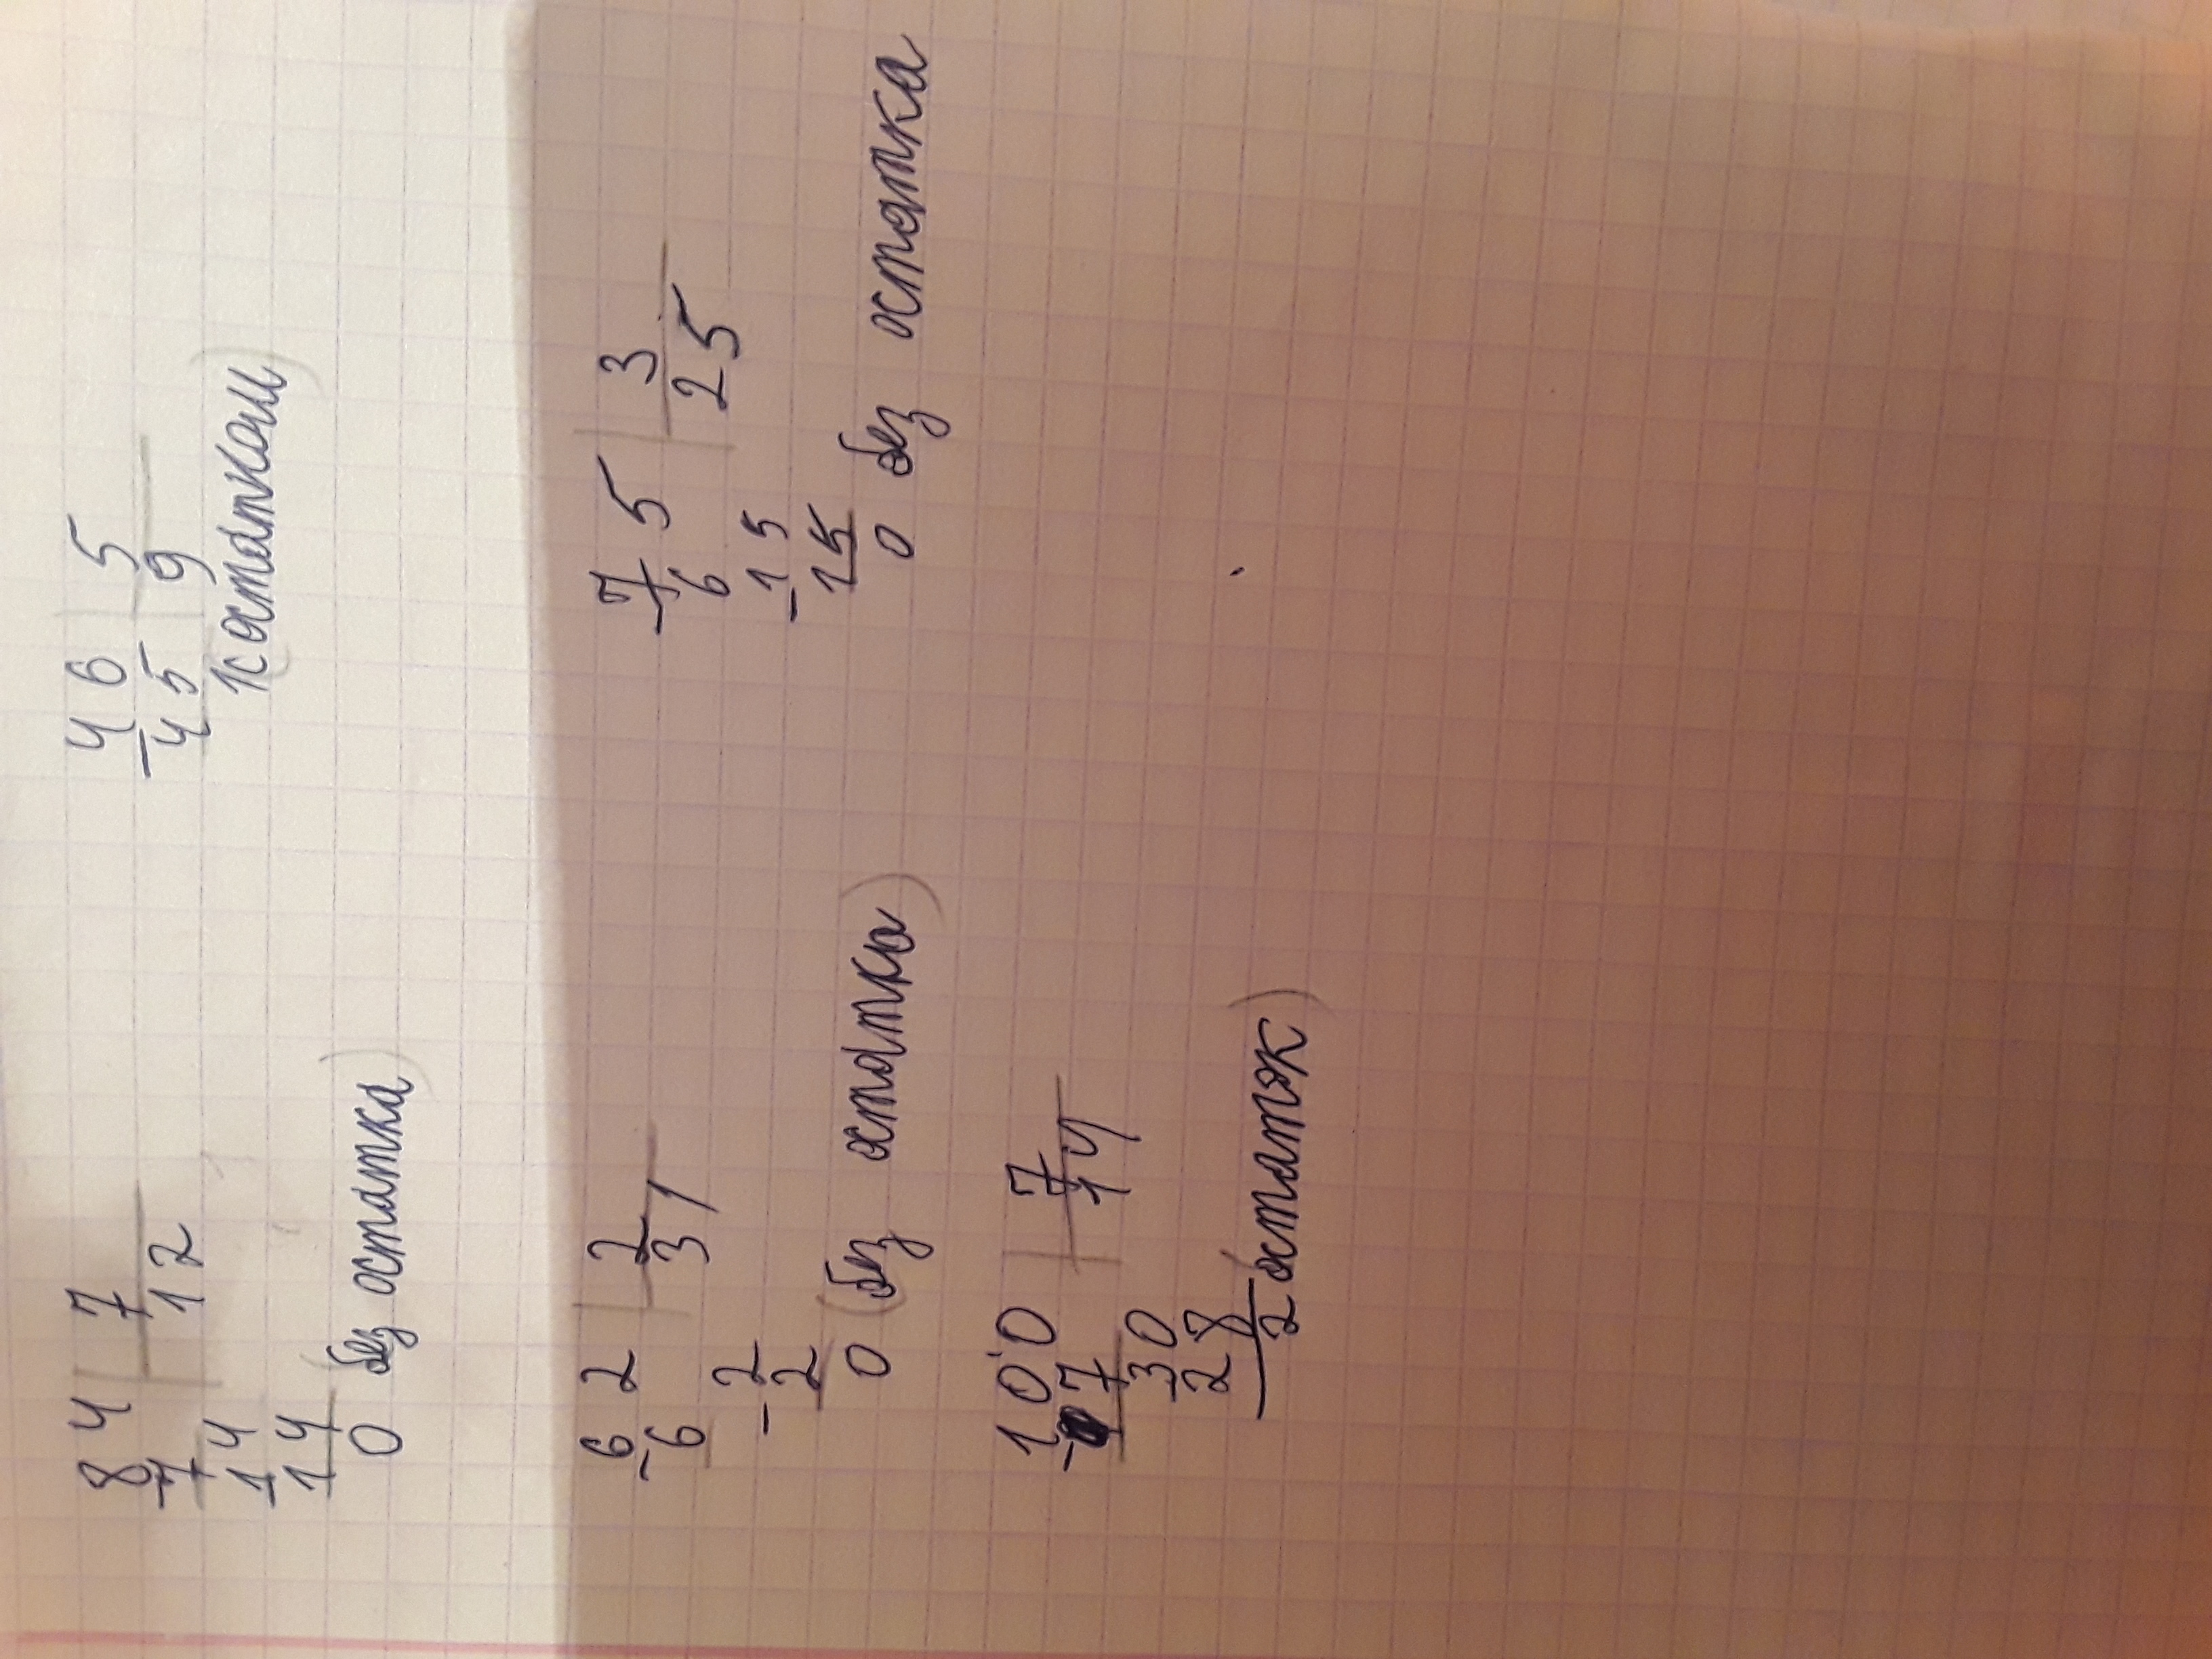 84 | 7
-7 | 12
-14
14
0 без остатка)
46 | 5
-45 | 9
1(с остатком)
62 | 2
-6 | 31
-2
2
0 (без остатка)
75 | 3
-6 | 25
-15
15
0 без остатка
100 | 7
-7 | 14
-30
28
2 (остаток)